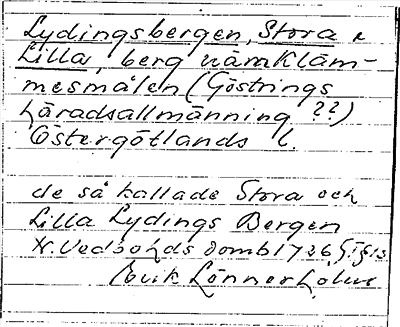 Lydingsbergen, Stora o
Lilla, berg näm Kläm-
mesmålen (Göstrings
häradsallmänning ??)
Östergötlands l.
de så kallade Stora och
Lilla Lydings Bergen
N. Vedbo hds domb 1726
Erik Lönnerholm